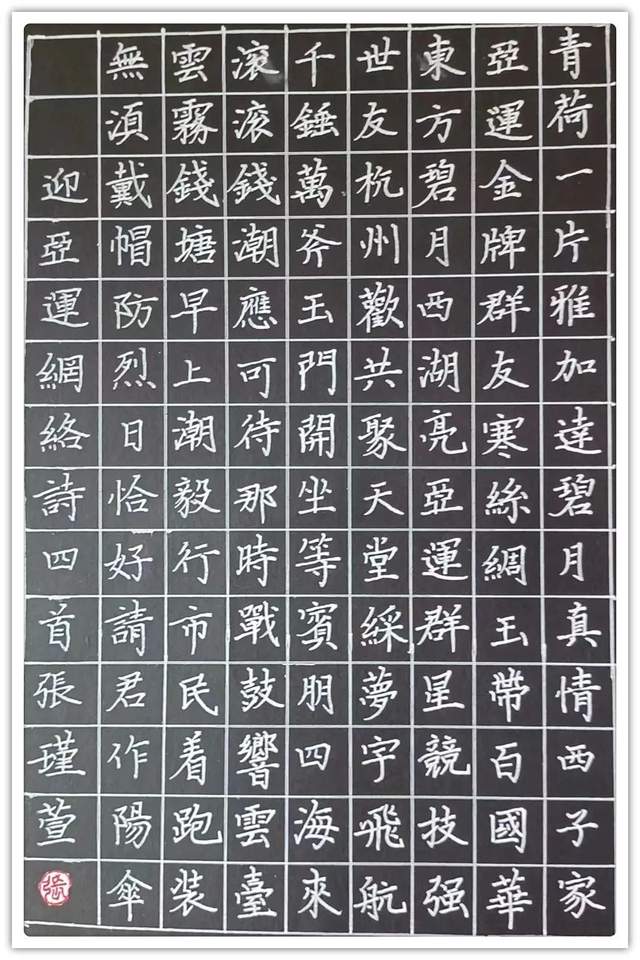 青荷一片雅加達碧月真情西子家
亞運金牌群友寒絲綢玉帶百國華
東方碧月西湖亮亞運群星競技强
世友杭州歡共聚天堂綵夢宇飛航
千錘萬斧玉門開坐等賓朋四海來
滾滾錢潮應可待那時戰鼓響雲臺
雲霧錢塘早上潮毅行市民着跑装
無湏戴帽防烈日恰好請君作陽傘
迎亞運網絡詩四首張瑾萱
張